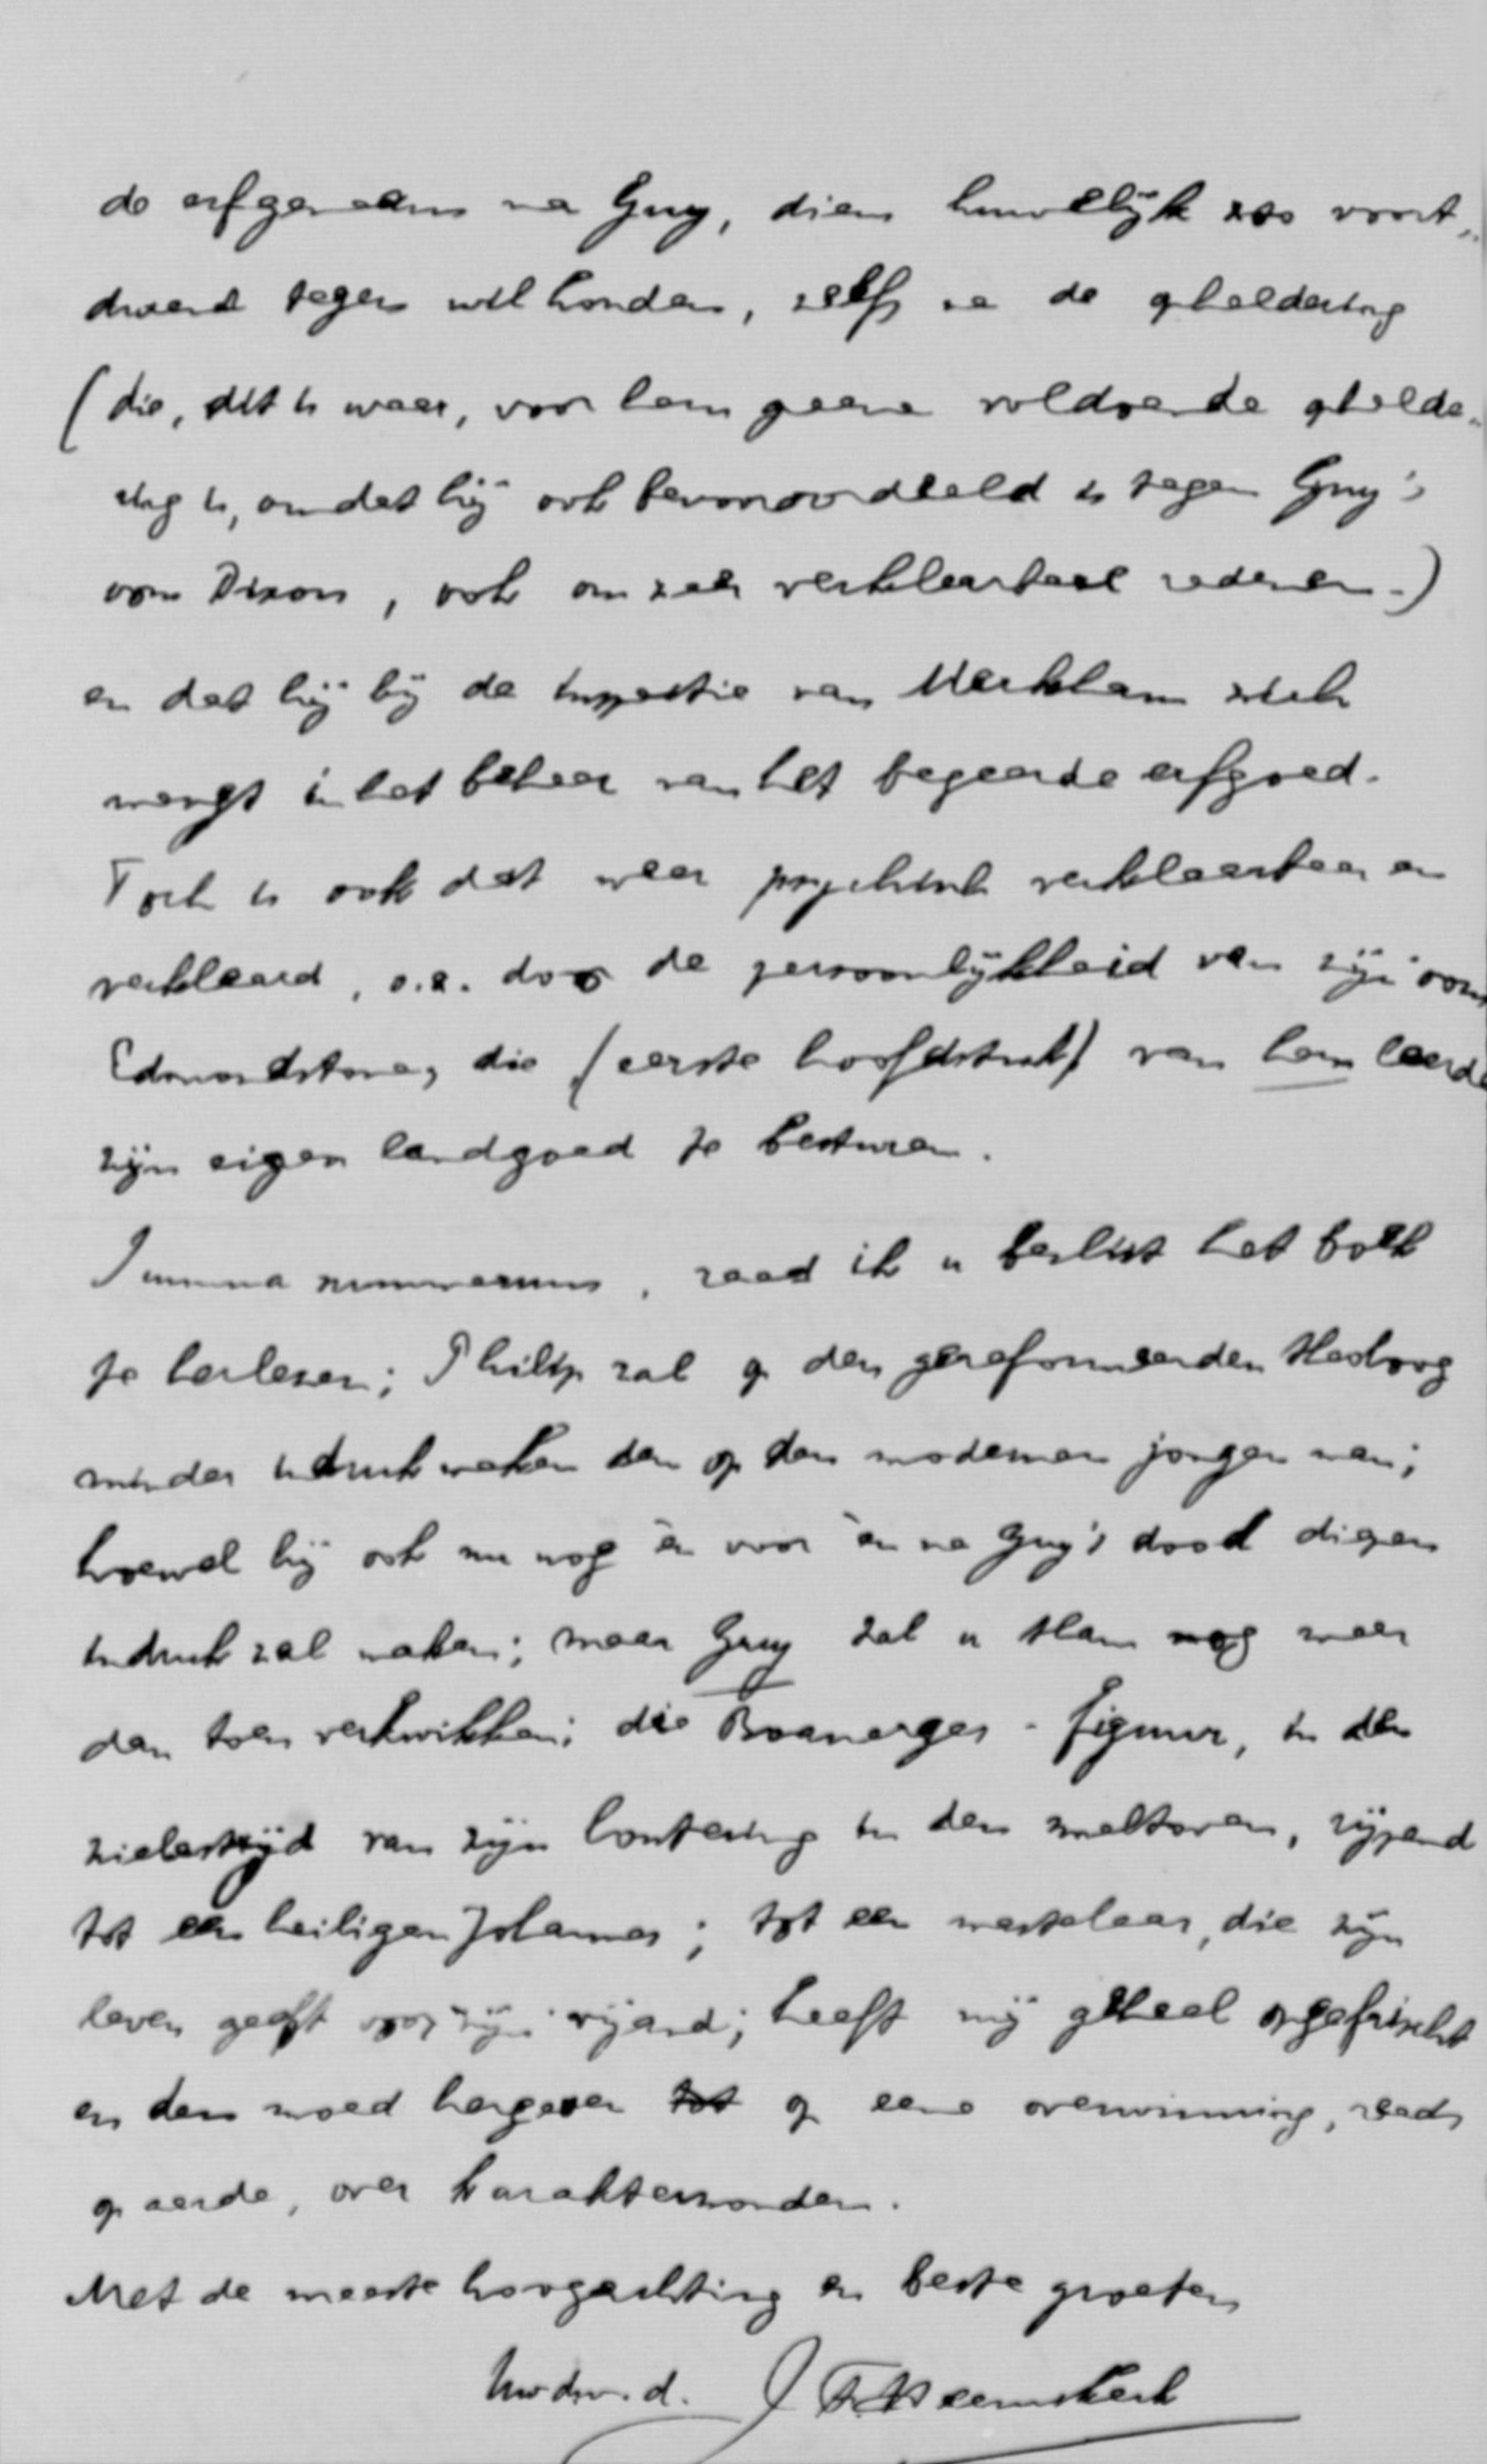 de erfgename na Guy, diens huwelijk zoo voort„
durend tegen wil houden, zelfs na de opheldering
(die, dit is waar, voor hem geene voldoende ophelde„
ring is, omdat hij ook bevooroordeeld is tegen Guy's
oom Dixon, ook om zeer verklaarbare redenen.)
en dat hij bij de inspectie van Markham zich
mengt in het beheer van het begeerde erfgoed.
Toch is ook dat weer psychisch verklaarbaar en
verklaard, o.a. door de persoonlijkheid van zijn oom
Edmondstone, die (eerste hoofdstuk) van hem leerde
zijn eigen landgoed te besturen.
Summa summarum, raad ik u beslist het boek
te herlezen; Philip zal op den gereformeerden Hoogleeraar
minder indruk maken dan op den modernen jongen man;
hoewel hij ook nu nog èn voor èn na Guy's dood diepen
indruk zal maken; maar Guy zal u thans nog meer
dan toen verkwikken; die Boanerges-figuur, in den
zielestrijd van zijn loutering in den smeltoven, rijpend
tot een heiligen Johannes; tot een martelaar, die zijn
leven geeft voor zijn vijand; heeft mij geheel opgefrischt
en den moed hergeven tot op eene overwinning, reeds
op aarde, over karakterzonden.
Met de meeste hoogachting en beste groeten
Uw dw. d. J F Heemskerk